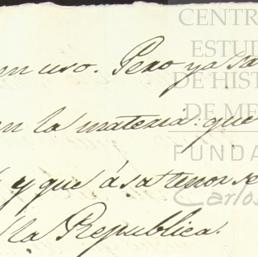 en uso. Pero ya sa
en la materia: que
y que á sa tenor se
la Republica.
CENTR
ESTUD
DE HIST
DE ME
FUNDA
Carlos